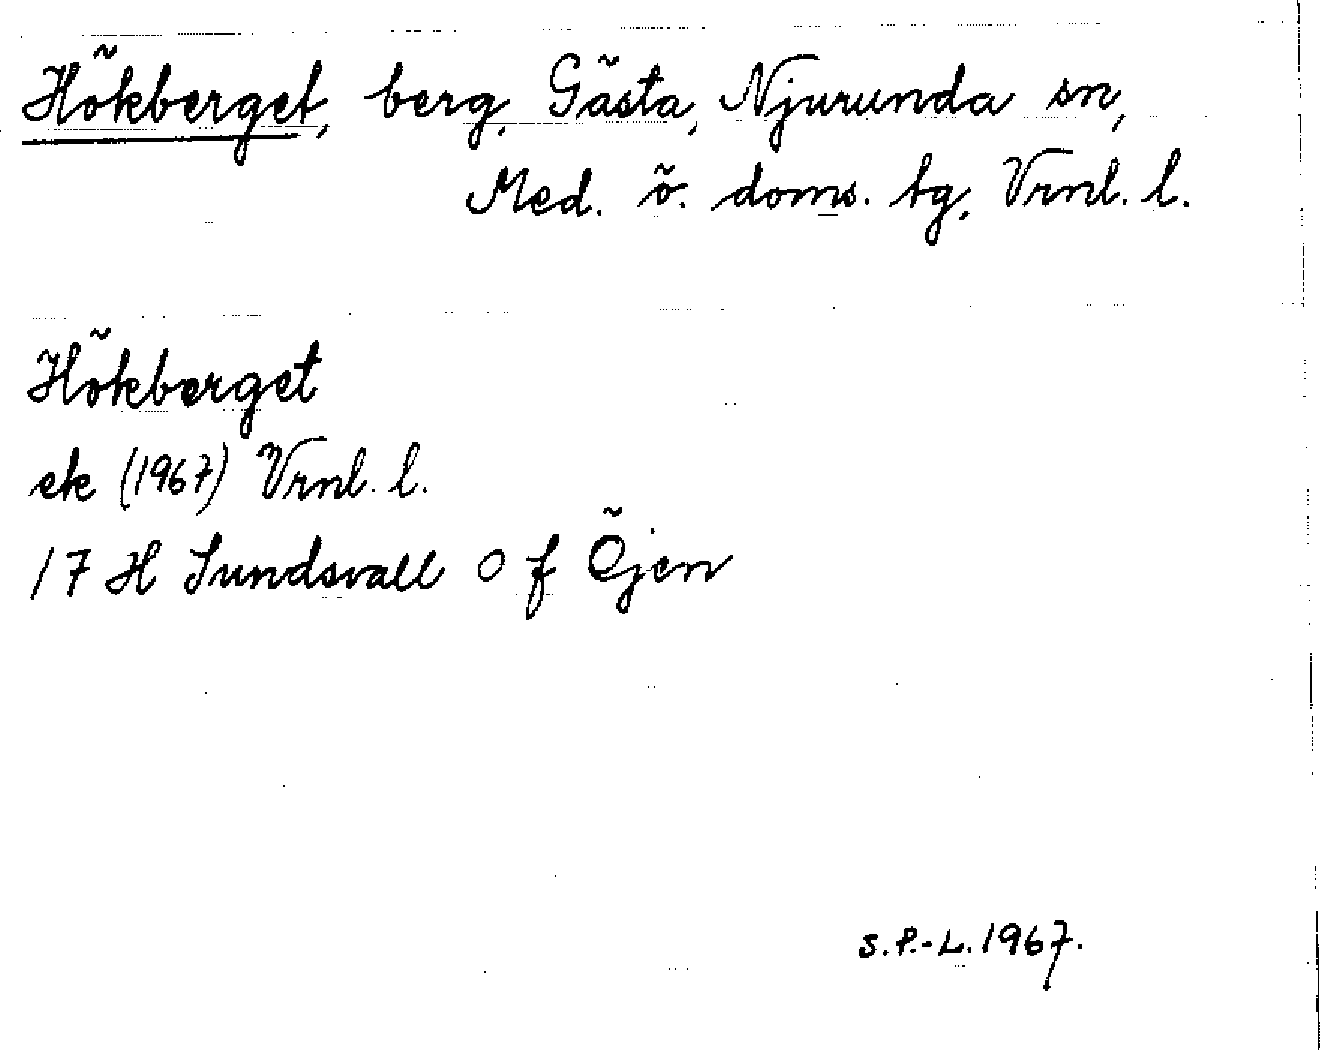 Hökberget, berg, Gästa, Njurunda sn,
Med. ö. doms. tg, Vrnl. l.
Hökberget
ek (1967) Vrnl. l.
17 H Sundsvall O f Öjen
S.P.-L. 1967.